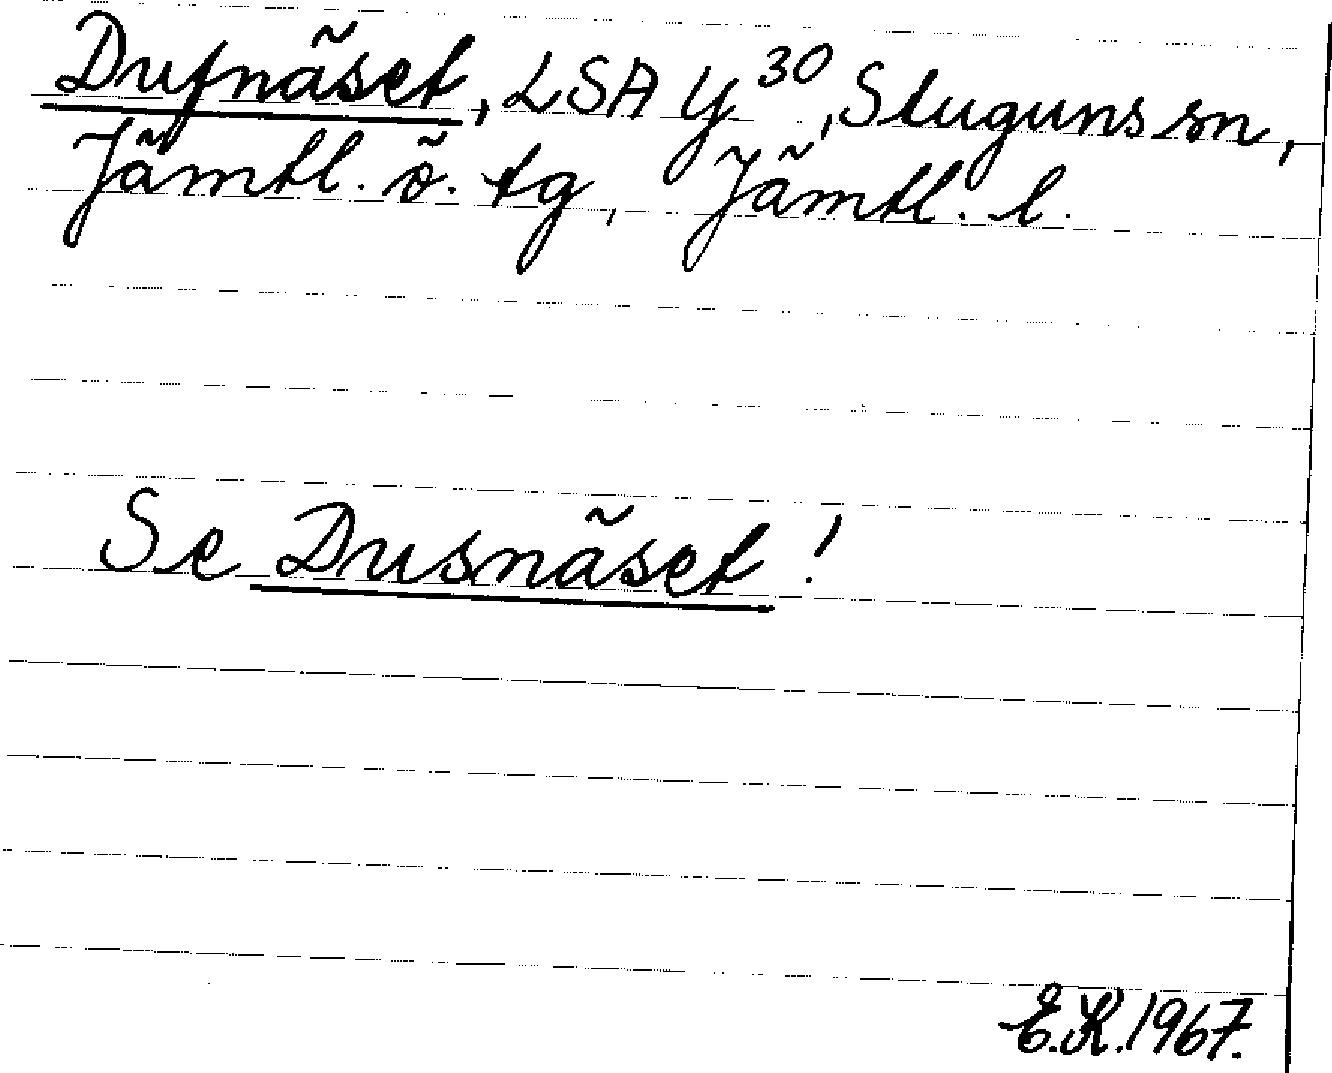 Dufnäset, LSA Y³⁰, Stuguns sn,
Jämtl. ö. tg, Jämtl. l.
Se Dusnäset!
E.K. 1967.